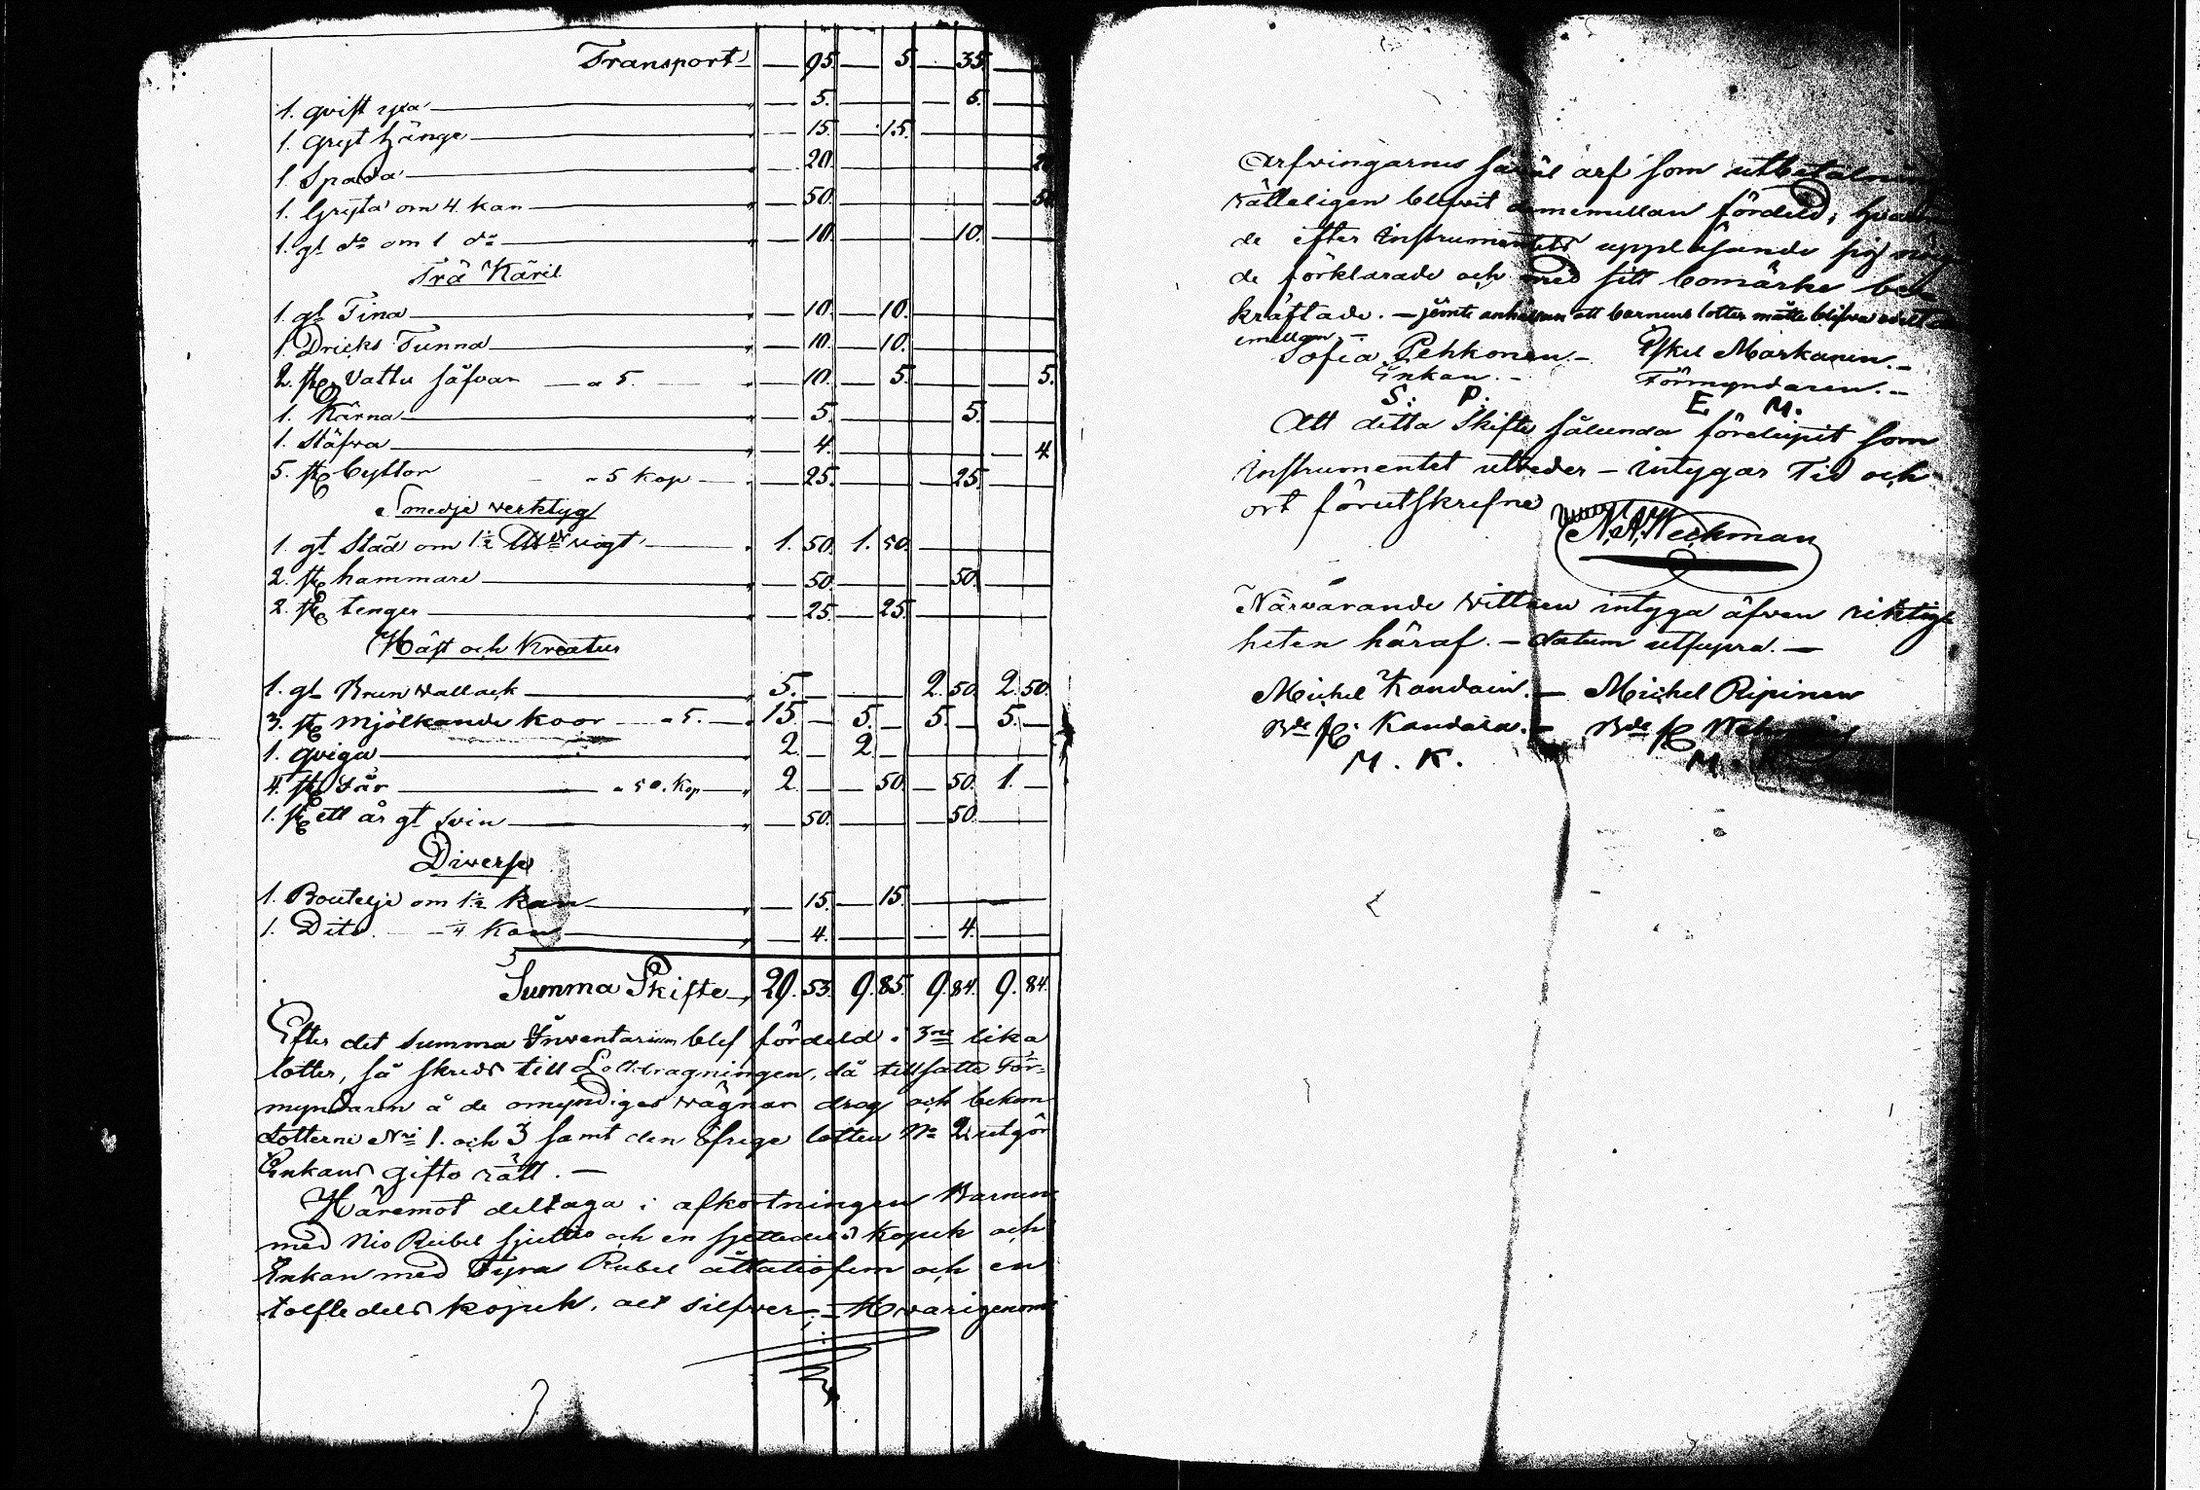 Transport — 95. — 5. — 35. —
1. qvist yxa — 5. — — 5. —
1. Gryt hänge — 15. — 15. —
1. Spada — 20. — — — 20
1. Gryta om 4. kan — 50. — — — 50
1. gl do om 1 do — 10. — — 10. —
Trä Käril
1. gl Tina — 10. — 10.
1. Dricks Tunna — 10. — 10.
2. st Vattu såfvar — a 5. — 10. — 5. — — 5.
1. Kärna — 5. — 5.
1. Stäfva — 4. — — 4
5. st byttor a 5 kop — 25. — 25.
Smedje verktyg
1. gl Städ om 1½ vigt 1. 50. 1. 50.
2. st hammare — 50. — 50.
2. st tenger — 25. — 25.
Häst och Kreatur
1. gl Brun vallack — 5. — — 2. 50. 2. 50.
3. st Mjölkande koor — a 5. — 15. — 5. — 5. — 5. —
1. qviga — 2. — 2. —
4. st Får — a 50. Kop — 2. — — 50. — 50. 1. —
1. st ett år gl Svin — 50. — 50. —
Diverse
1. Boutelje om 1½ kan — 15. — 15. —
1. Dito — kan — 4. — — 4. —
Summa Skifte — 29. 53. 9. 85. 9. 84. 9. 84.
Efter det summa Inventarium blef fördeld i 3ne lika
lotter, så skreds till Lottdragningen, då tillsatte För-
myndaren å de omyndiges vägnar drog och bekom
Lotterne No 1. och 3 samt den öfrige lotten No 2. utgör
Enkans gifto rätt. —
Häremot deltaga i afkortningen Barnen
med Nio Rubel sjuttio och en sjettedels Kopek och
Enkan med Fyra Rubel åttatiofem och en
tolftedels kopek, alt silfver. — Hvarigenom
Arfvingarnes såväl arf som utbetalning
rätteligen blifvit dememellan fördeld, hvarmed
de efter Instrumentets uppläsande sig nöj
de förklarade och med sitt bomärke be-
kräftade. — jämte anhållan att barnens lotter måtte blifva
emellan —
Sofia Pehkonen. — Eskel Markanen. —
Enkan. — Förmyndaren. —
S: P: E. M.
Att detta Skifte sålunda förelupit som
Instrumentet utreder — intygar Tid och
ort förutskrefne
N. A. Weckman
Närvarande vittnen intyga äfven riktig-
heten häraf. — datum utsupra. —
Michel Kandain. — Michel Ripinen
Bde fr. Kandala. — Bde fr
M. K. M.